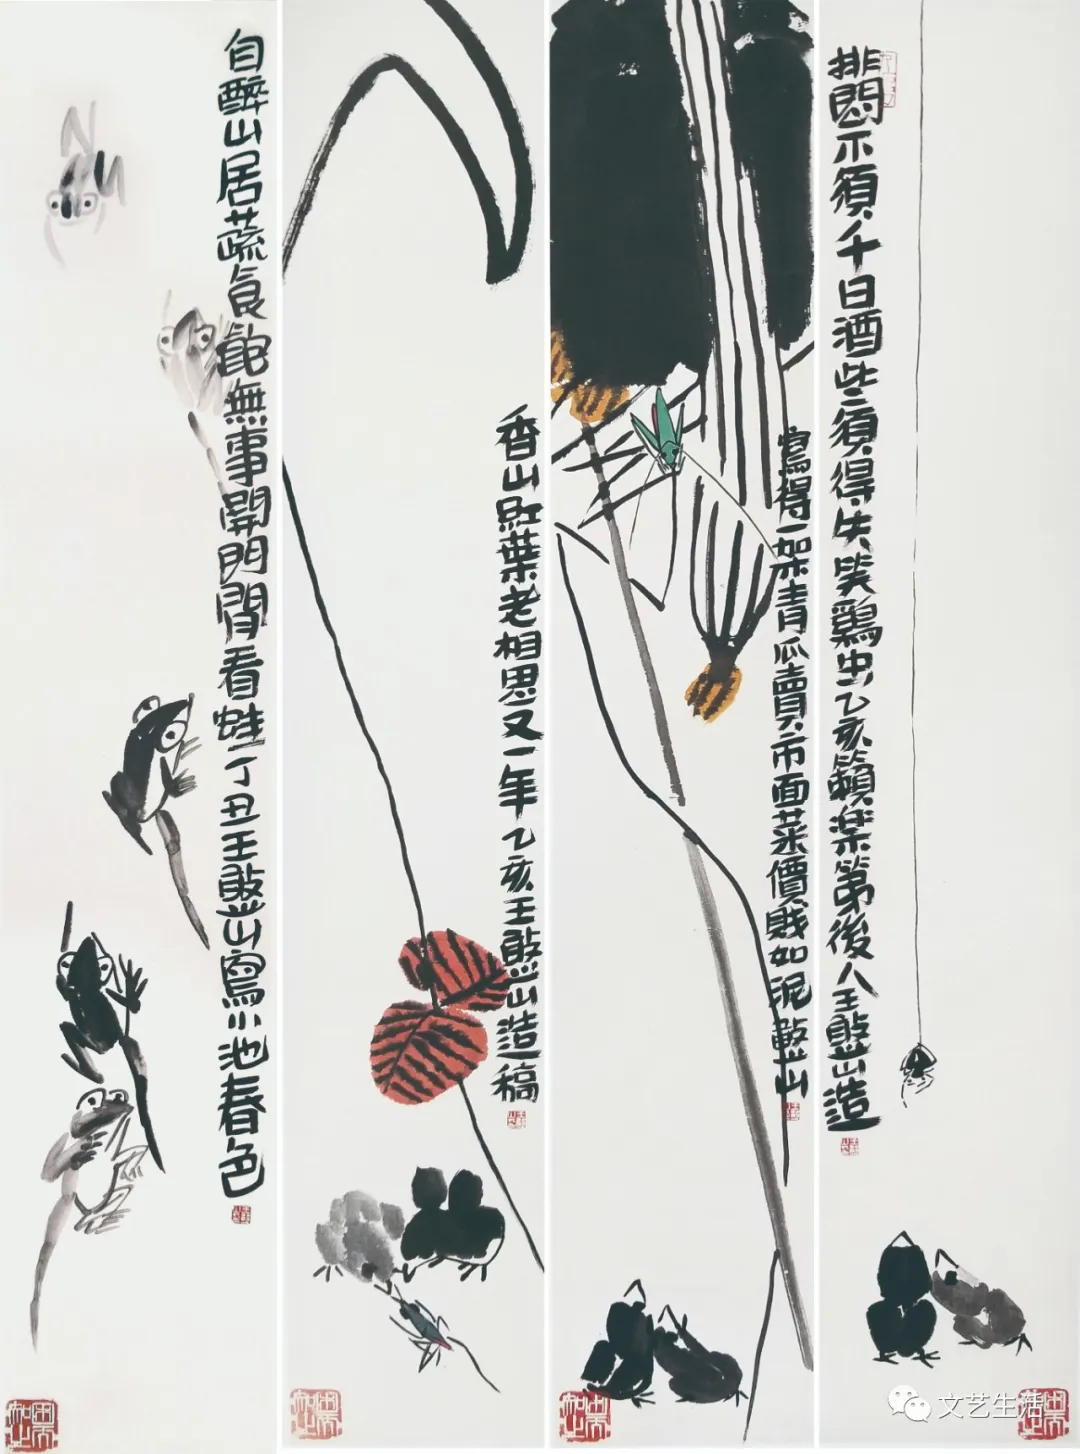 排悶不須千日酒些須得失笑鷄虫乙亥籟楽第後人王憨山造
寫得一架青瓜賣市面菜價賤如泥憨山
香山紅葉老相思又一年乙亥王憨山造一稿
自醉山居蔬食飽無事開門閒看蛙丁丑王憨山寫小池春色
文艺生活